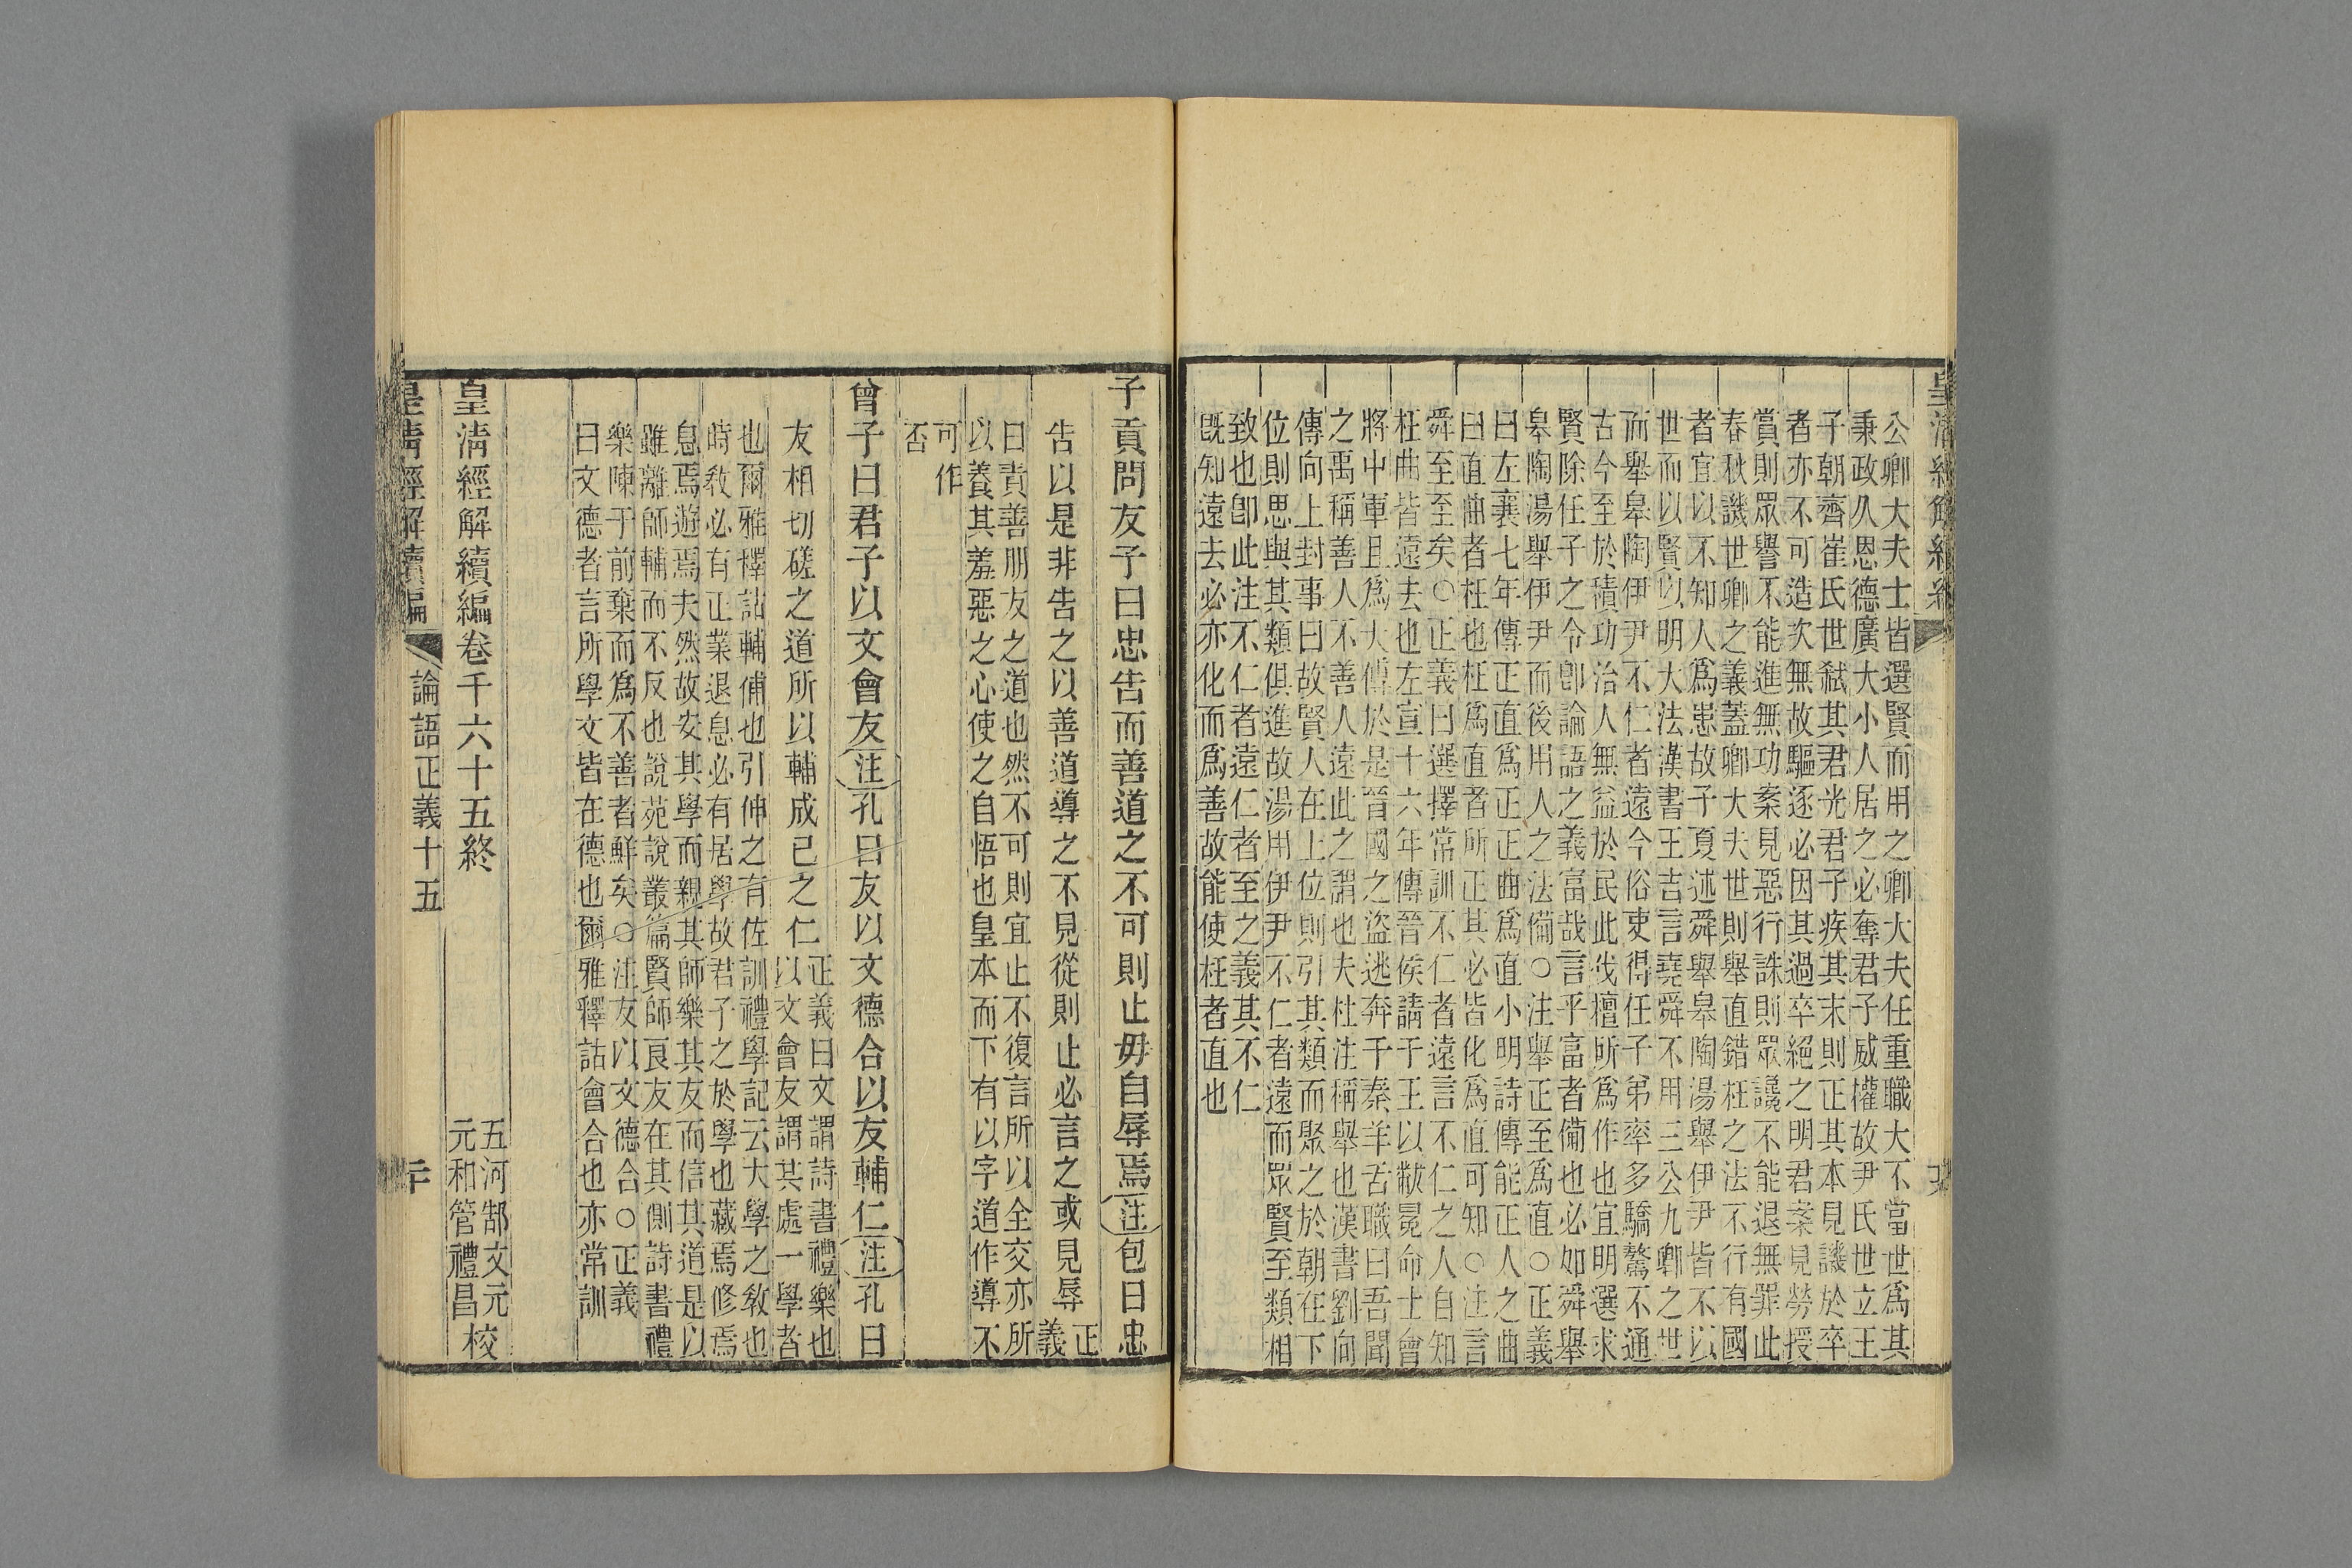 皇清經解續編
十九
公卿大夫士皆選賢而用之卿大夫任重職大不當世爲其
秉政久恩德廣大小人居之必奪君子威權故尹氏世立王
子朝齊崔氏世弒其君光君子疾其末則正其本見譏於卒
者亦不可造次無故驅逐必因其過卒絕之明君案見勞授
賞則眾譽不能進無功案見惡行誅則眾讒不能退無罪此
春秋譏世卿之義蓋卿大夫世則舉直錯枉之法不行有國
者宜以不知人爲患故子夏述舜舉皋陶湯舉伊尹皆不以
世而以賢以明大法漢書王吉言堯舜不用三公九卿之世
而舉皋陶伊尹不仁者遠今俗吏得任子弟率多驕驁不通
古今至於積功治人無益於民此伐檀所爲作也宜明選求
賢除任子之令卽論語之義富哉言乎富者備也必如舜舉
皋陶湯舉伊尹而後用人之法備○注舉正至爲直○正義
曰左襄七年傳正直爲正正曲爲直小明詩傳能正人之曲
曰直曲者枉也枉爲直者所正其必皆化爲直可知○注言
舜至至矣○正義曰選擇常訓不仁者遠言不仁之人自知
枉曲皆遠去也左宣十六年傳晉侯請于王以黻冕命士會
將中軍且爲大傅於是晉國之盜逃奔于秦羊舌職曰吾聞
之禹稱善人不善人遠此之謂也夫杜注稱舉也漢書劉向
傳向上封事曰故賢人在上位則引其類而聚之於朝在下
位則思與其類俱進故湯用伊尹不仁者遠而眾賢至類相
致也卽此注不仁者遠仁者至之義其不仁
既知遠去必亦化而爲善故能使枉者直也
子貢問友子曰忠告而善道之不可則止毋自辱焉注包曰忠
告以是非告之以善道導之不見從則止必言之或見辱正義
曰責善朋友之道也然不可則宜止不復言所以全交亦所
以養其羞惡之心使之自悟也皇本而下有以字道作導不
可作
否
曾子曰君子以文會友注孔曰友以文德合以友輔仁注孔曰
友相切磋之道所以輔成己之仁正義曰文謂詩書禮樂也
以文會友謂其處一學者
也爾雅釋詁輔俌也引伸之有佐訓禮學記云大學之敎也
時敎必有正業退息必有居學故君子之於學也藏焉修焉
息焉遊焉夫然故安其學而親其師樂其友而信其道是以
雖離師輔而不反也說苑說叢篇賢師良友在其側詩書禮
樂陳于前棄而爲不善者鮮矣○注友以文德合○正義
曰文德者言所學文皆在德也爾雅釋詁會合也亦常訓
皇清經解續編卷千六十五終
五河郜文元
元和管禮昌校
皇清經解續編
論語正義十五
二十